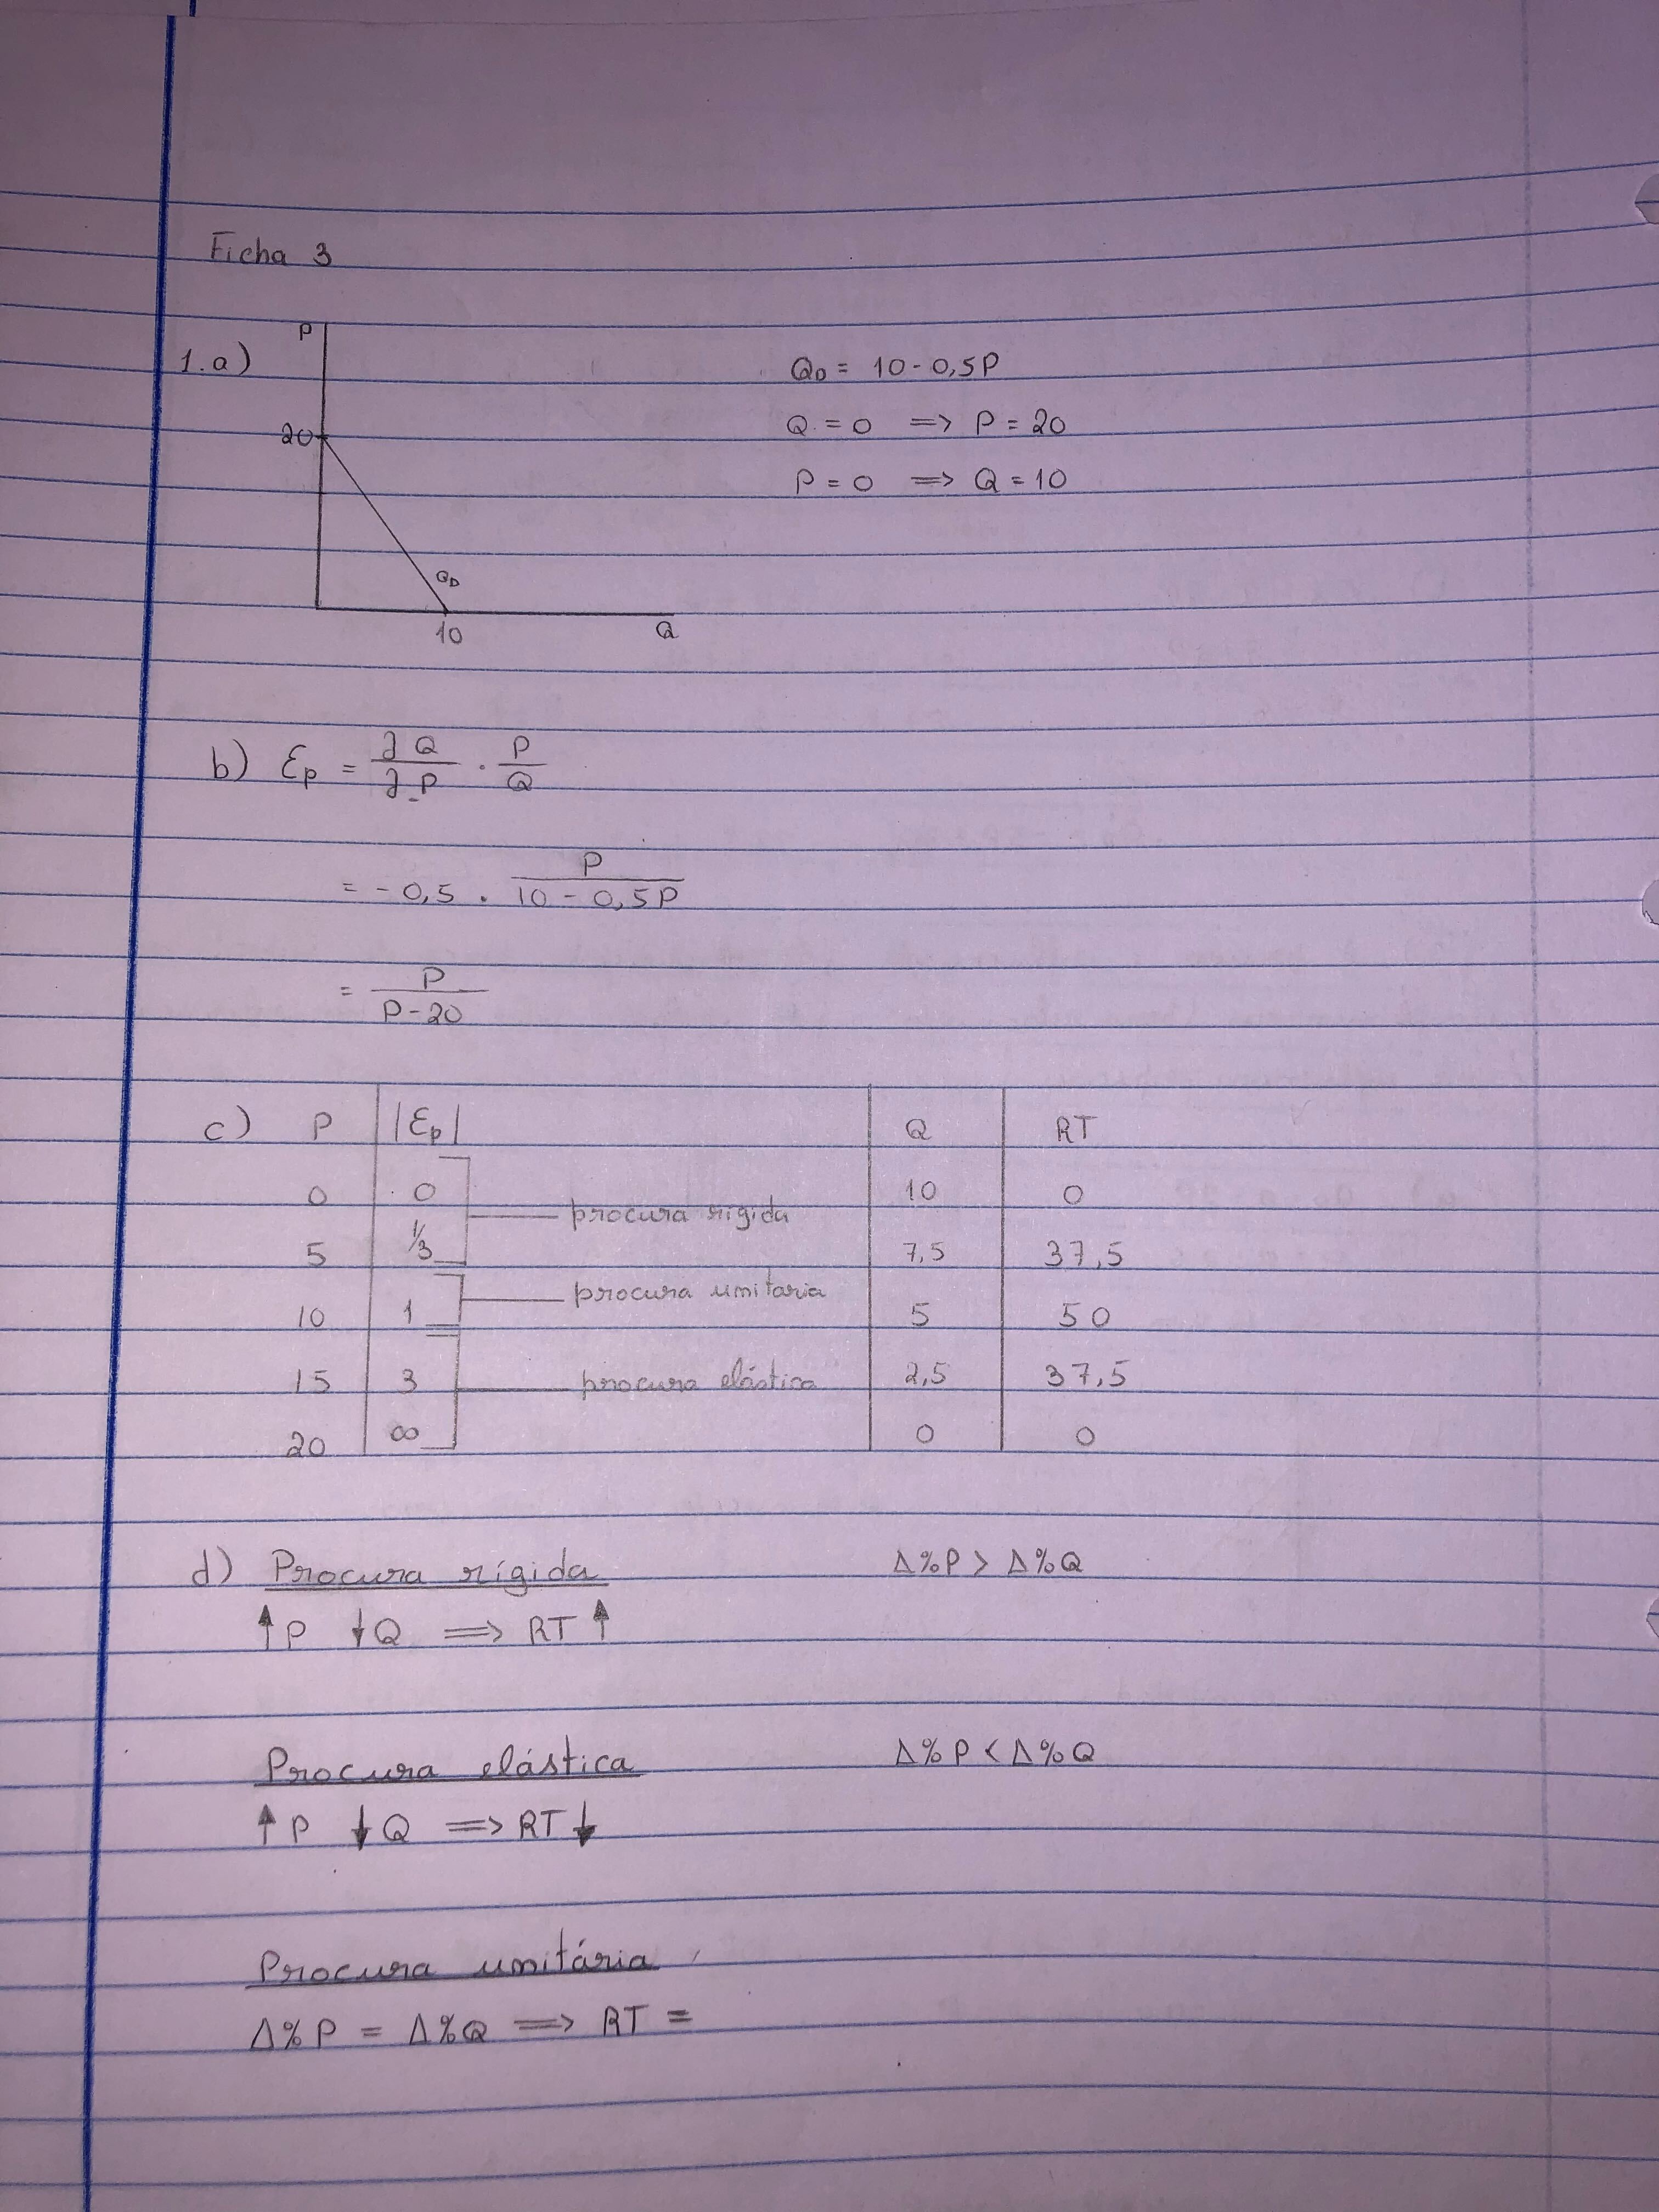 Ficha 3
1.a) P
20
QD
10 Q
QD = 10 - 0,5P
Q = 0 => P = 20
P = 0 => Q = 10
b) Ɛp = ∂Q/∂P . P/Q
= - 0,5 . P/(10 - 0,5P)
= P/(P - 20)
c) P |Ɛp| Q RT
0 0 procura rígida 10 0
5 1/3 7,5 37,5
10 1 procura unitaria 5 50
15 3 procura elástica 2,5 37,5
20 ∞ 0 0
d) Procura rígida Δ%P > Δ%Q
↑P ↓Q => RT ↑
Procura elástica Δ%P < Δ%Q
↑P ↓Q => RT ↓
Procura unitária
Δ%P = Δ%Q => RT =